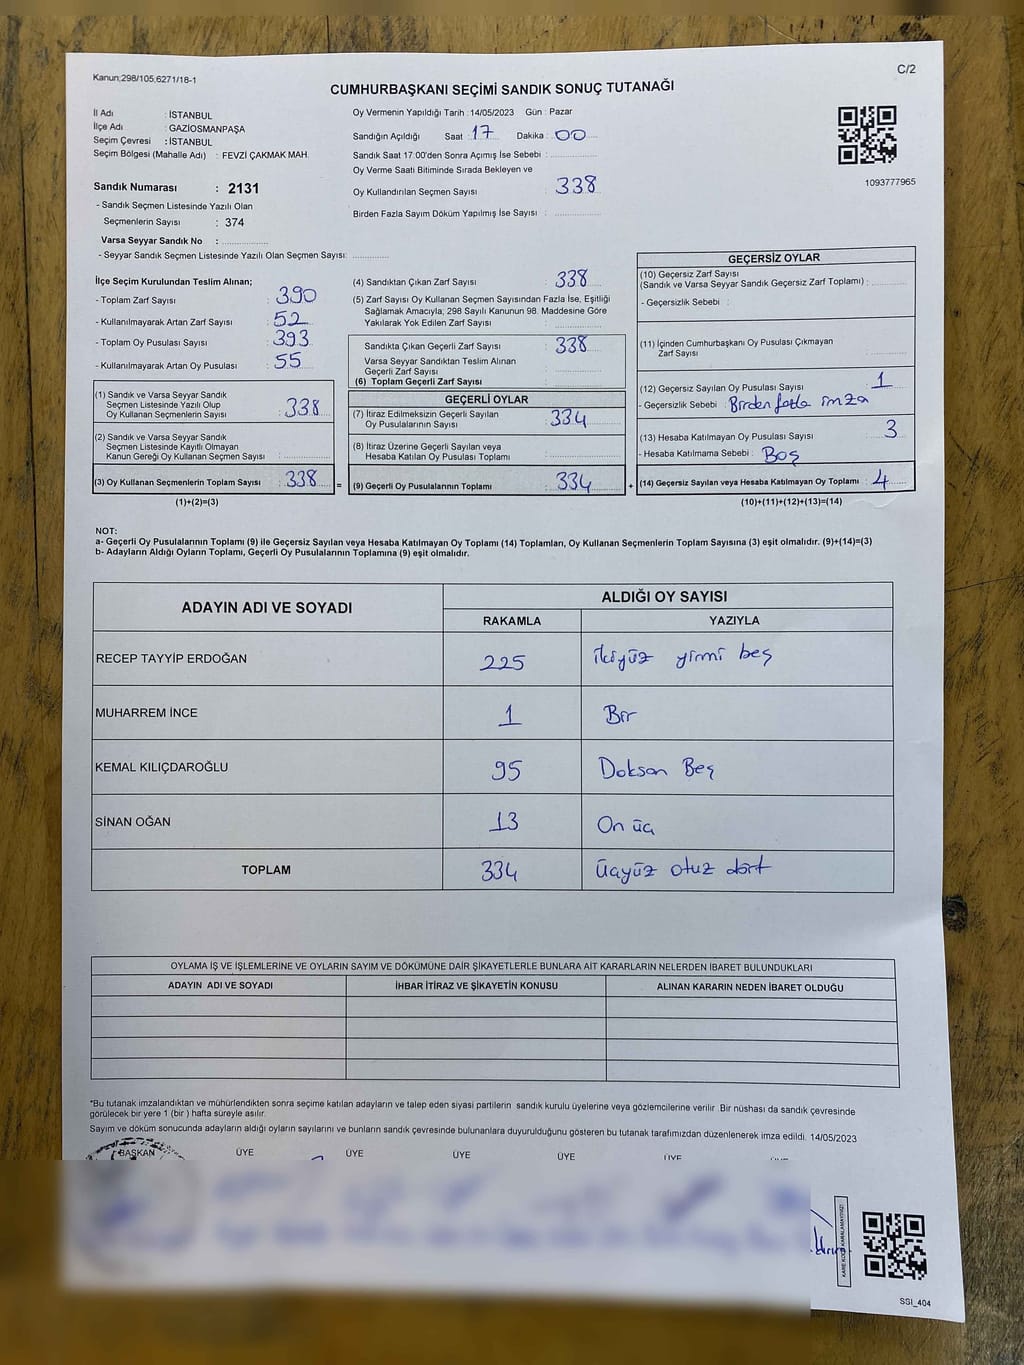 Kanun;298/105,6271/18-1
C/2
CUMHURBAŞKANI SEÇİMİ SANDIK SONUÇ TUTANAĞI
İl Adı : İSTANBUL
İlçe Adı : GAZİOSMANPAŞA
Seçim Çevresi : İSTANBUL
Seçim Bölgesi (Mahalle Adı) : FEVZİ ÇAKMAK MAH.
Sandık Numarası : 2131
- Sandık Seçmen Listesinde Yazılı Olan
Seçmenlerin Sayısı : 374
Varsa Seyyar Sandık No :
- Seyyar Sandık Seçmen Listesinde Yazılı Olan Seçmen Sayısı:
Oy Vermenin Yapıldığı Tarih :14/05/2023 Gün : Pazar
Sandığın Açıldığı Saat 17 Dakika 00
Sandık Saat 17:00'den Sonra Açımış İse Sebebi :
Oy Verme Saati Bitiminde Sırada Bekleyen ve
Oy Kullandırılan Seçmen Sayısı : 338
Birden Fazla Sayım Döküm Yapılmış İse Sayısı :
1093777965
İlçe Seçim Kurulundan Teslim Alınan;
- Toplam Zarf Sayısı : 390
- Kullanılmayarak Artan Zarf Sayısı : 52
- Toplam Oy Pusulası Sayısı : 393
- Kullanılmayarak Artan Oy Pusulası : 55
(1) Sandık ve Varsa Seyyar Sandık
Seçmen Listesinde Yazılı Olup
Oy Kullanan Seçmenlerin Sayısı : 338
(2) Sandık ve Varsa Seyyar Sandık
Seçmen Listesinde Kayıtlı Olmayan
Kanun Gereği Oy Kullanan Seçmen Sayısı :
(3) Oy Kullanan Seçmenlerin Toplam Sayısı : 338
(1)+(2)=(3)
=
(4) Sandıktan Çıkan Zarf Sayısı : 338
(5) Zarf Sayısı Oy Kullanan Seçmen Sayısından Fazla İse, Eşitliği
Sağlamak Amacıyla; 298 Sayılı Kanunun 98. Maddesine Göre
Yakılarak Yok Edilen Zarf Sayısı :
Sandıkta Çıkan Geçerli Zarf Sayısı : 338
Varsa Seyyar Sandıktan Teslim Alınan
Geçerli Zarf Sayısı :
(6) Toplam Geçerli Zarf Sayısı :
GEÇERLİ OYLAR
(7) İtiraz Edilmeksizin Geçerli Sayılan
Oy Pusulalarının Sayısı : 334
(8) İtiraz Üzerine Geçerli Sayılan veya
Hesaba Katılan Oy Pusulası Toplamı :
(9) Geçerli Oy Pusulalarının Toplamı : 334
+
GEÇERSİZ OYLAR
(10) Geçersiz Zarf Sayısı
(Sandık ve Varsa Seyyar Sandık Geçersiz Zarf Toplamı) :
- Geçersizlik Sebebi :
(11) İçinden Cumhurbaşkanı Oy Pusulası Çıkmayan
Zarf Sayısı :
(12) Geçersiz Sayılan Oy Pusulası Sayısı : 1
- Geçersizlik Sebebi : Birden fazla imza
(13) Hesaba Katılmayan Oy Pusulası Sayısı : 3
- Hesaba Katılmama Sebebi : Boş
(14) Geçersiz Sayılan veya Hesaba Katılmayan Oy Toplamı : 4
(10)+(11)+(12)+(13)=(14)
NOT:
a- Geçerli Oy Pusulalarının Toplamı (9) ile Geçersiz Sayılan veya Hesaba Katılmayan Oy Toplamı (14) Toplamları, Oy Kullanan Seçmenlerin Toplam Sayısına (3) eşit olmalıdır. (9)+(14)=(3)
b- Adayların Aldığı Oyların Toplamı, Geçerli Oy Pusulalarının Toplamına (9) eşit olmalıdır.
ADAYIN ADI VE SOYADI
ALDIĞI OY SAYISI
RAKAMLA YAZIYLA
RECEP TAYYİP ERDOĞAN 225 ikiyüz yirmi beş
MUHARREM İNCE 1 Bir
KEMAL KILIÇDAROĞLU 95 Doksan Beş
SİNAN OĞAN 13 On üç
TOPLAM 334 üçyüz otuz dört
OYLAMA İŞ VE İŞLEMLERİNE VE OYLARIN SAYIM VE DÖKÜMÜNE DAİR ŞİKAYETLERLE BUNLARA AİT KARARLARIN NELERDEN İBARET BULUNDUKLARI
ADAYIN ADI VE SOYADI İHBAR İTİRAZ VE ŞİKAYETİN KONUSU ALINAN KARARIN NEDEN İBARET OLDUĞU
*Bu tutanak imzalandıktan ve mühürlendikten sonra seçime katılan adayların ve talep eden siyasi partilerin sandık kurulu üyelerine veya gözlemcilerine verilir .Bir nüshası da sandık çevresinde
görülecek bir yere 1 (bir ) hafta süreyle asılır.
Sayım ve döküm sonucunda adayların aldığı oyların sayılarını ve bunların sandık çevresinde bulunanlara duyurulduğunu gösteren bu tutanak tarafımızdan düzenlenerek imza edildi. 14/05/2023
BAŞKAN ÜYE ÜYE ÜYE ÜYE ÜYE
SSI_404